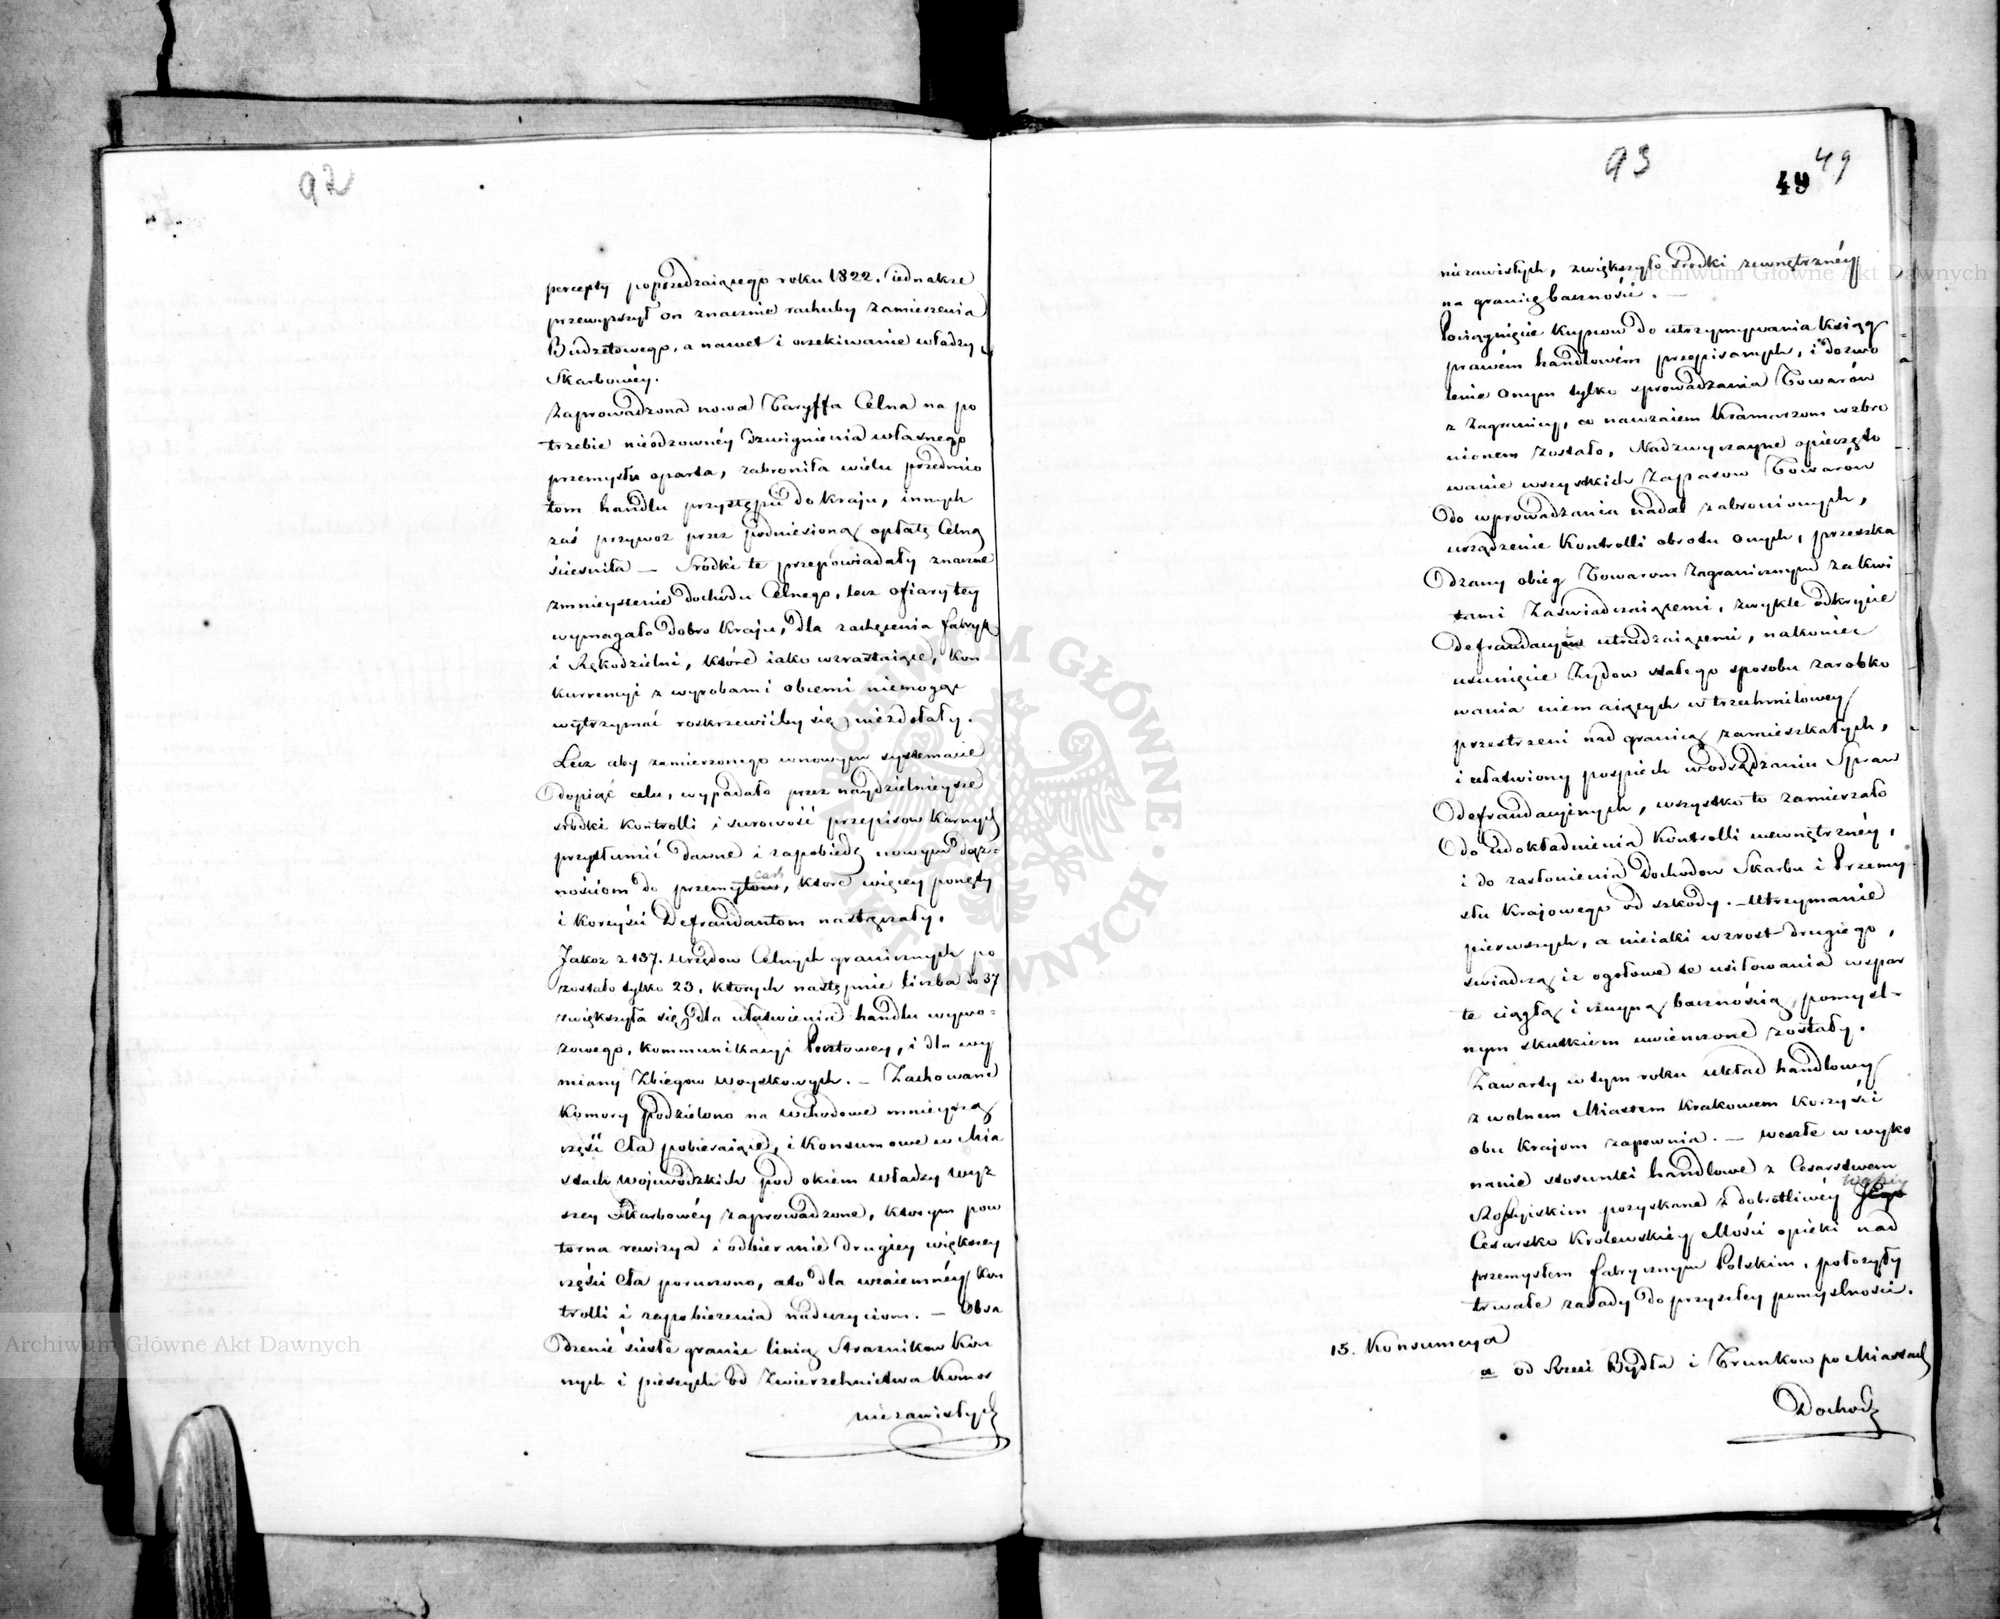 92
percepty poprzedzaiącego roku 1822. iednakże
przewyższył on znacznie rachuby zamierzenia
Budżetowego, a nawet i oczekiwanie władzy
Skarbowéy.
Zaprowadzona nowa Taryffa Celna na po
trzebie nieodzownéy dzwignienia własnego
przemysłu oparta, zabroniła wielu przedmio
tom handlu przystępu do kraju, innych
zaś przywoz przez podniesioną opłatę Celną
ścieśniła — Srodki te przepowiadały znaczne
zmnieyszenie dochodu Celnego, lecz ofiary tey
wymagało dobro Kraju, dla zachęcenia fabryk
i Rękodzielni, które iako wzrastaiące, kon
kurrencyi z wyrobami obcemi niemogąc
wytrzymać roskrzewićby się niezdołały.
Lecz aby zamierzonego wnowym systemacie
dopiąć celu, wypadało przez naydzielnieysze
srodki kontrolli i surowość przepisow karnych
przytłumić dawne i zapobiedz nowym dąż-
nościom do przemytow, ktore więcey ponęty
i korzyści Defraudantom nastręczały.
Jakoż z 137. Urzędow Celnych granicznych po
zostało tylko 23. ktorych następnie liczba do 37
zwiększyła się dla ułatwienia handlu wywo=
zowego, kommunikacyi Pocztowey, i dla wy
miany Zbiegow Woyskowych. — Zachowane
Komory podzielono na wchodowe mnieyszą
część Cła pobieraiące, i Konsumowe w Mia
stach Wojewódzkich pod okiem Władzy Wyż
szey Skarbowéy zaprowadzone, ktorym pow
torna rewizya i odbieranie drugiey większey
części Cła poruczono, a to dla wzaiemnéy kon
trolli i zapobieżenia nadużyciom. — Obsa
dzenie ścisłe granic linią Strażnikow Kon
nych i pieszych od Zwierzchnictwa Komor
niezawisłych
93
49
49
niezawisłych, zwiększyło srodki zewnętrznéy
na granicę baczności. —
Pociągnięcie Kupcow do utrzymywania Ksiąg
prawem handlowém przepisanych, i dozwo
lenie onym tylko sprowadzania Towarów
z Zagranicy, co nawzaiem Kramarzom wzbro
nionem zostało, Nadzwyczayne opieczęto
wanie wszystkich Zapasow Towarów
do wprowadzania nadal zabronionych,
urządzenie Kontrolli obrotu onych, przeszka
dzany obieg Towarom Zagranicznym za kwi
tami Zaświadczaiącemi, zwykle odkrycie
defraudacyów utrudzaiącemi, nakoniec
usunięcie Żydow stałego sposobu zarobko
wania niemaiących w trzechmilowey
przestrzeni nad granicą zamieszkałych,
i ułatwiony pospiech wodsądzaniu Spraw
defraudacyinych, wszystko to zamierzało
do udokładnienia Kontrolli wewnętrznéy,
i do zasłonienia Dochodow Skarbu i Przemy
słu Krajowego od szkody. — Utrzymanie
pierwszych, a nieiaki wzrost drugiego,
swiadczą iż ogołowe te usiłowania wspar
te ciągłą i czynną bacznością, pomysl-
nym skutkiem uwienczone zostały.
Zawarty w tym roku układ handlowy
z wolnem Miastem Krakowem korzyści
obu Krajom zapewnia. — Weszłe w wyko
nanie stosunki handlowe z Cesarstwem
Rossyiskim pozyskane z dobrotliwéy Jego
Cesarsko Krolewskiéy Mości opieki nad
przemysłem fabrycznym Polskim, położyły
trwałe zasady do przyszłey pomyslności.
15. Konsumcya
a od Rzezi Bydła i Trunkow po Miastach
Dochod
Archiwum Główne Akt Dawnych
Archiwum Główne Akt Dawnych
ARCHIWUM GŁÓWNE AKT DAWNYCH